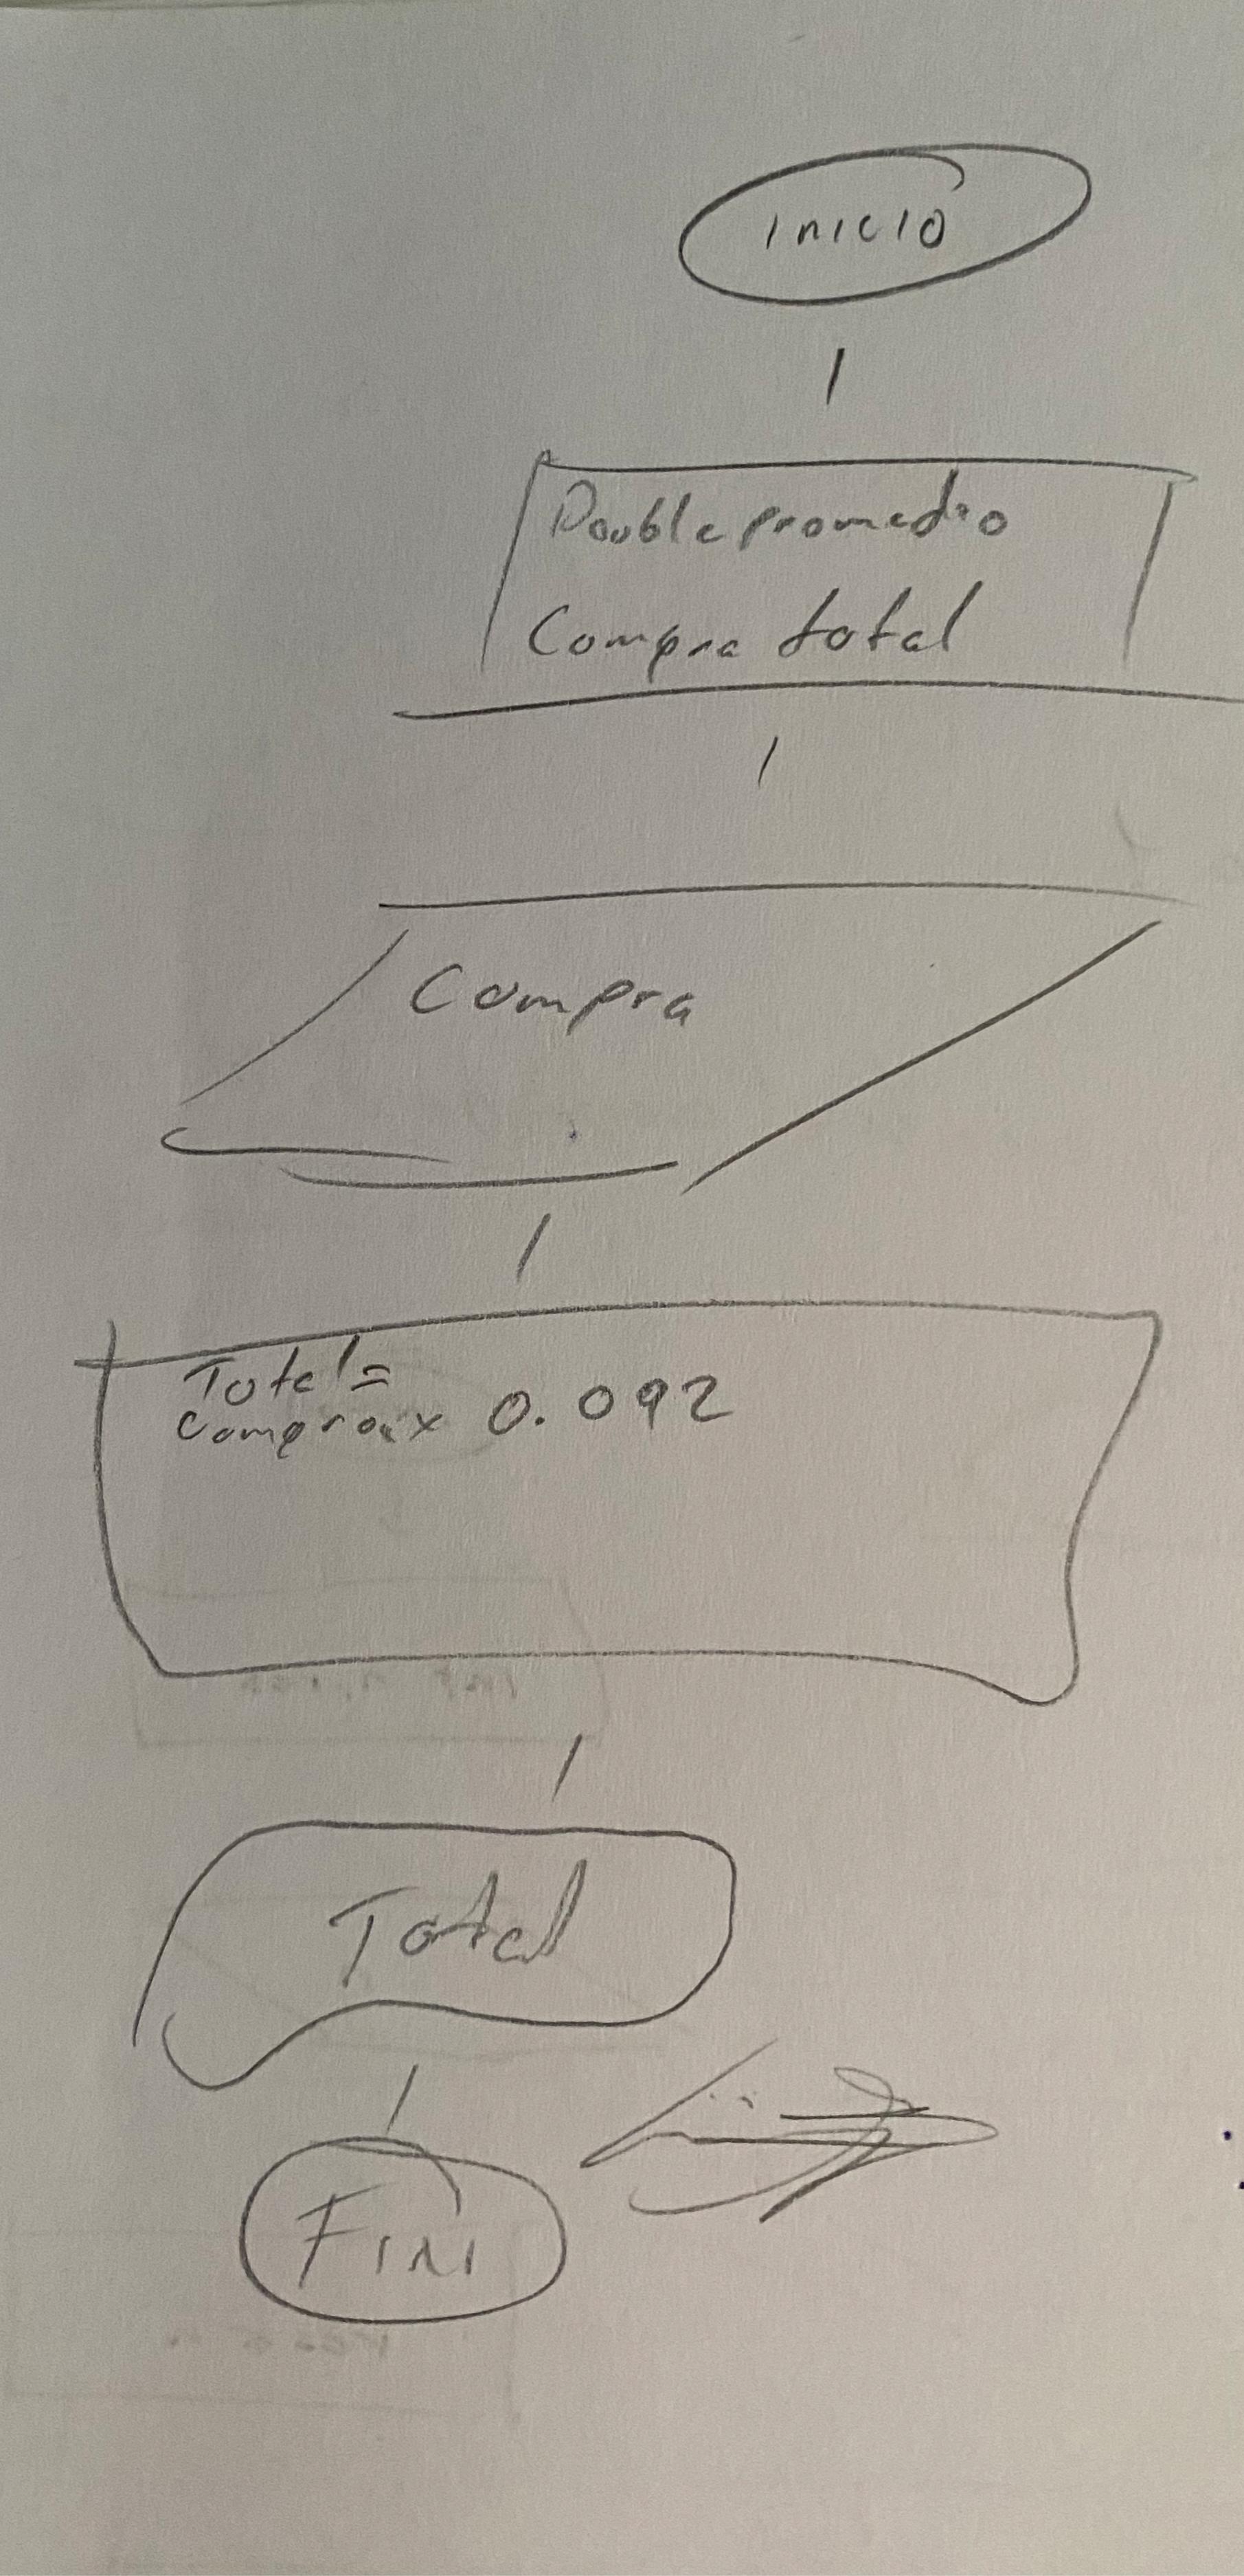 Inicio
Double promedio
Compra total
Compra
Total=
compra x 0.092
Total
Fin